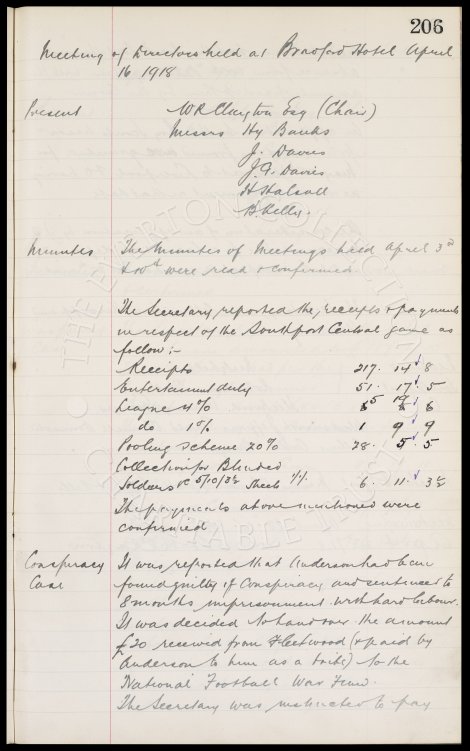 206
Meeting of Directors held at Bradford Hotel April
16 1918
Present W R Clayton Esq (Chair)
Messrs Hy Banks
J. Davies
J. F. Davies
H Halsall
B Kelly.
Minutes The Minutes of Meetings held April 3rd
& 10th were read & confirmed.
The Secretary reported the receipts & payments
in respect of the Southport Central game as
follow :-
Receipts 217. 14 8
Entertainment duty 51. 17. 5
League 4% 5 19 6
do 1% 1 9 9
Pooling Scheme 20% 28. 5. 5
Collection for Blinded
Soldiers 6. 11. 3½
The payments above mentioned were
confirmed
Conspiracy It was reported that Anderson had been
Case found guilty of Conspiracy and sentenced to
8 months imprisonment with hard labour.
It was decided to hand over the amount
£20 received from Fleetwood (& paid by
Anderson to him as a bribe) to the
National Football War Fund.
The Secretary was instructed to pay
THE EVERTON COLLECTION
CHARITABLE TRUST